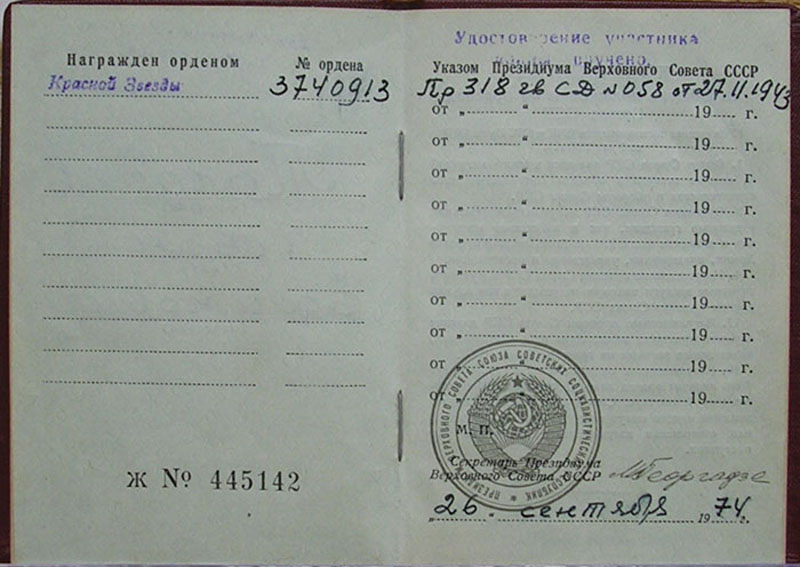 Награжден орденом
№ ордена
Красной Звезды
3740913
Ж № 445142
Удостоверение участника
вручено
Указом Президиума Верховного Совета СССР
Пр 318 гв СД №058 от 27.11.1943
от „ “ 19 г.
от „ “ 19 г.
от „ “ 19 г.
от „ “ 19 г.
от „ “ 19 г.
от „ “ 19 г.
от „ “ 19 г.
от „ “ 19 г.
от „ “ 19 г.
от „ “ 19 г.
М. П.
ПРЕЗИДИУМ ВЕРХОВНОГО СОВЕТА СОЮЗА СОВЕТСКИХ СОЦИАЛИСТИЧЕСКИХ РЕСПУБЛИК
Секретарь Президиума
Верховного Совета СССР
МГеоргадзе
„26 “ сентября 1974 г.